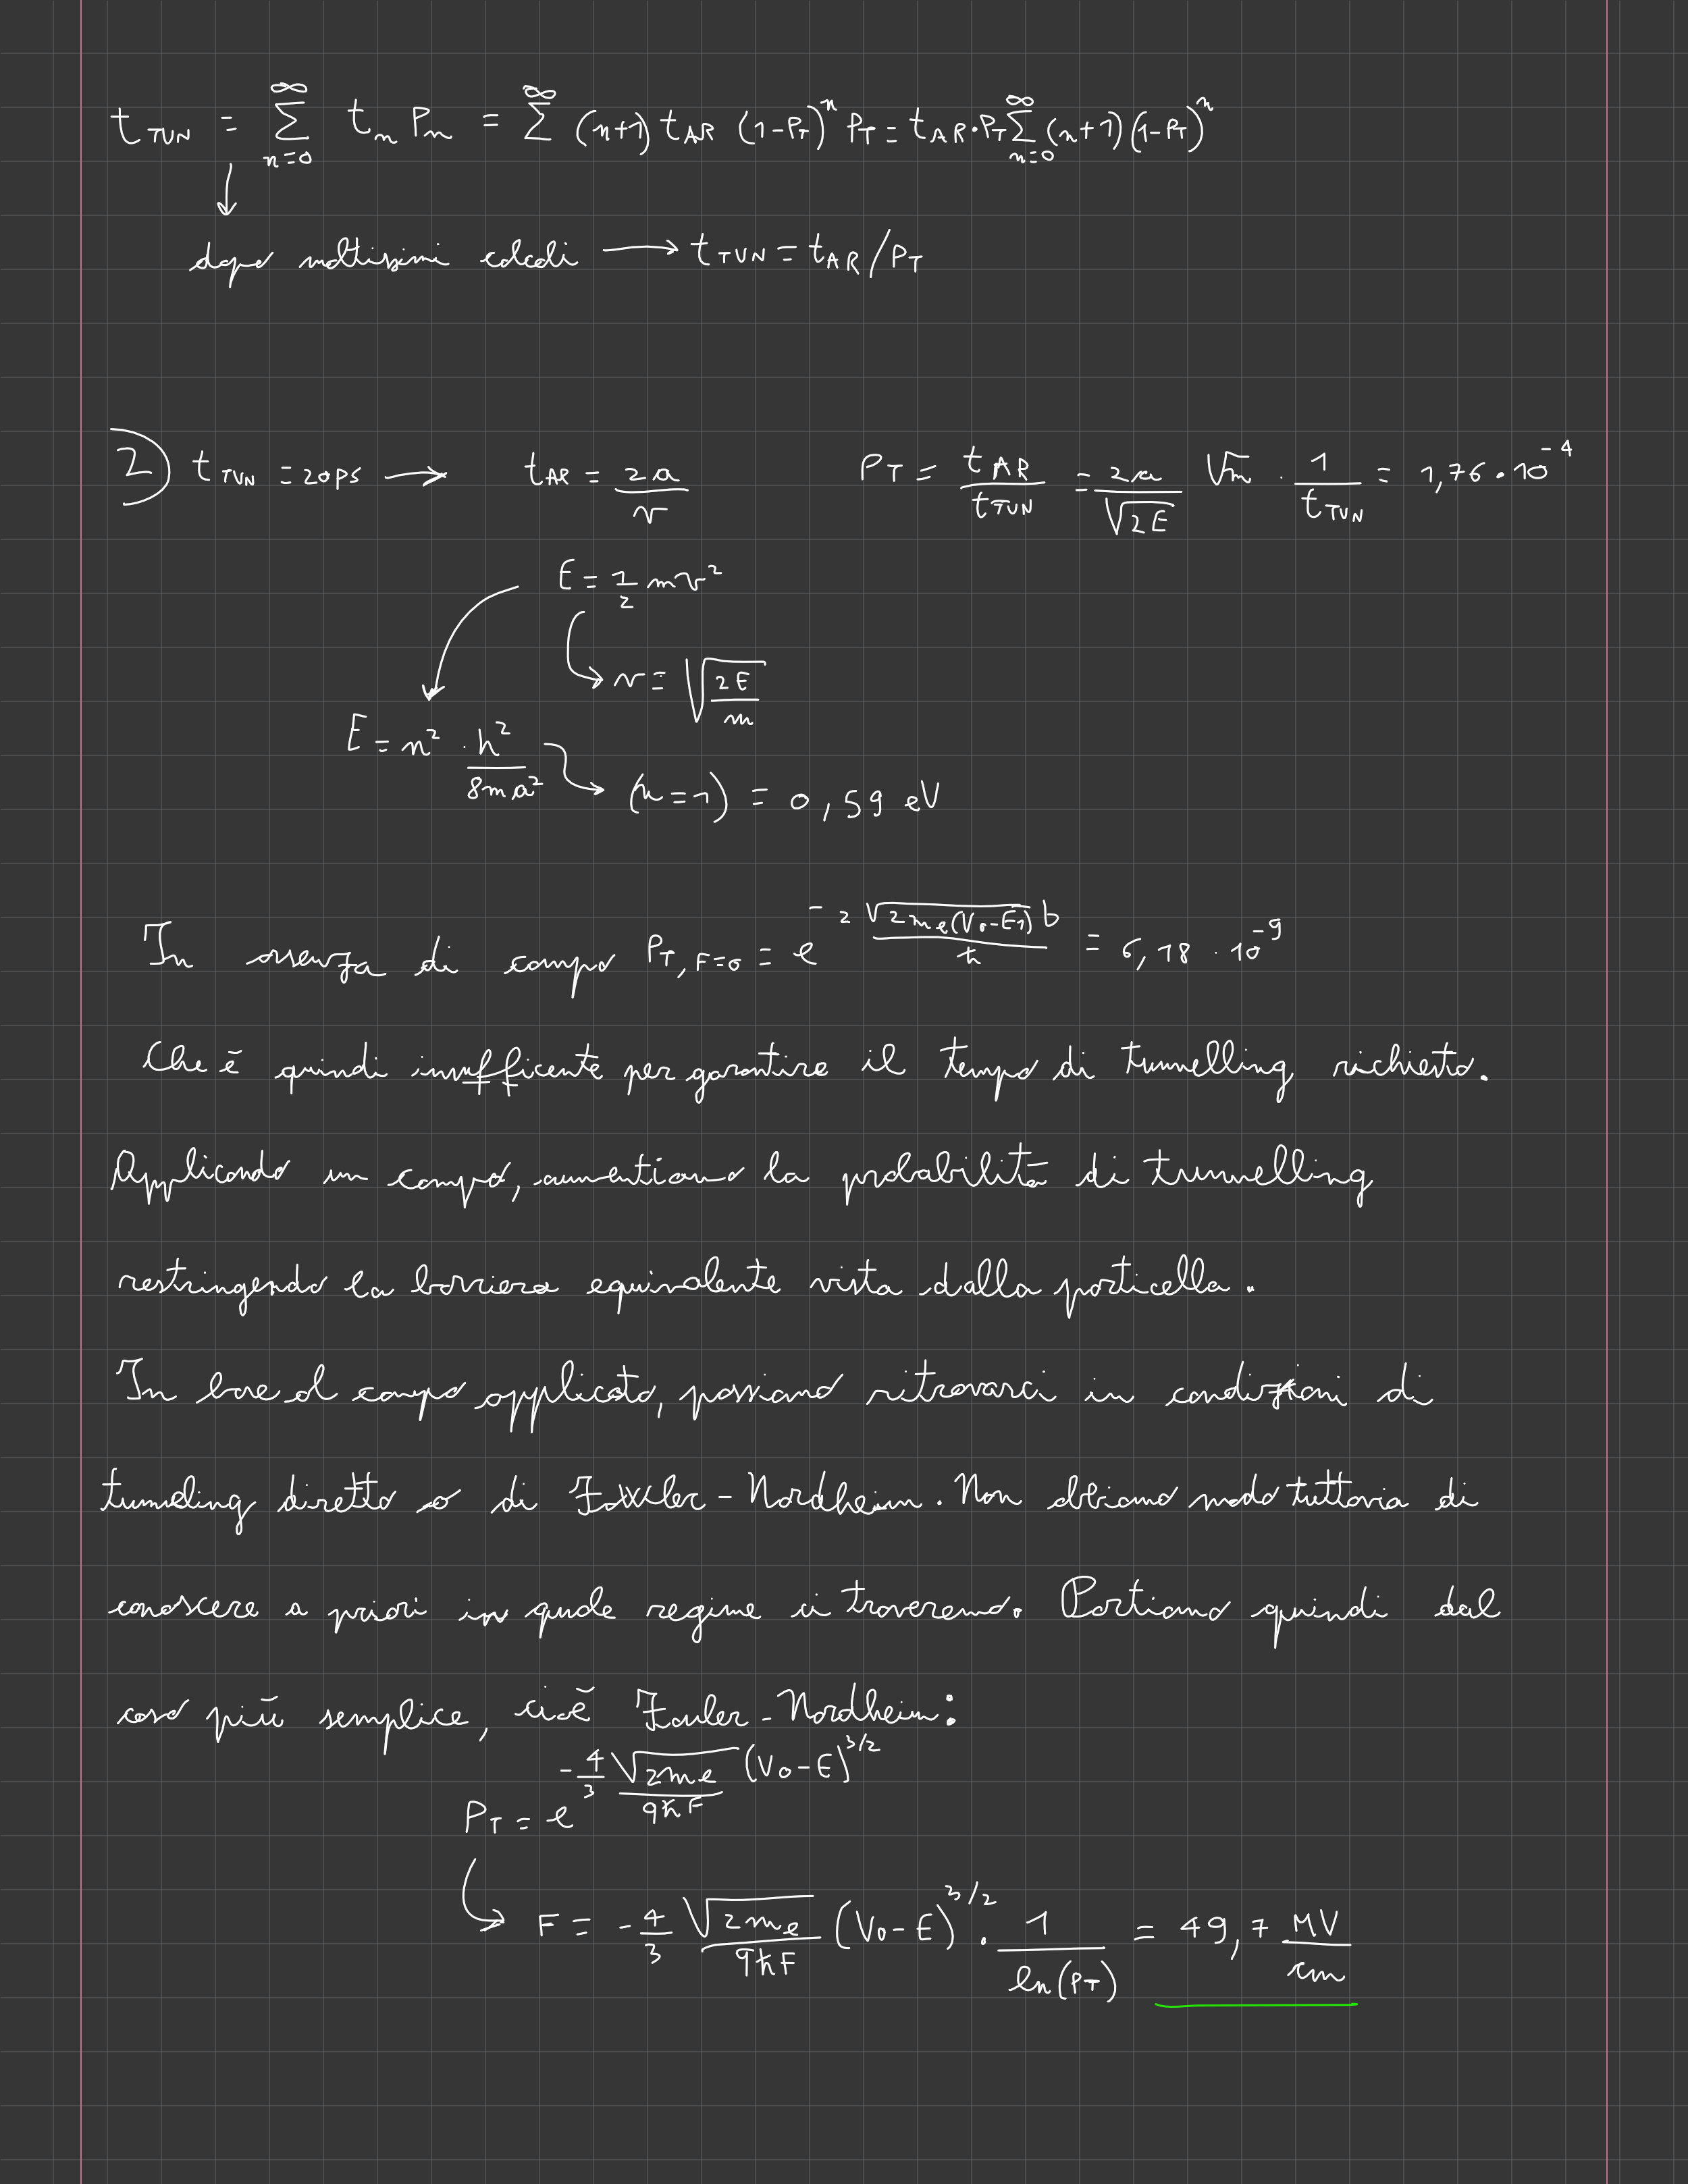 t_TUN = ∑_{n=0}^{∞} t_n P_n = ∑^{∞} (n+1) t_AR (1-P_T)^n P_T = t_AR · P_T ∑_{n=0}^{∞} (n+1)(1-P_T)^n
dopo moltissimi calcoli → t_TUN = t_AR / P_T
2) t_TUN = 20ps → t_AR = 2a/v P_T = t_AR/t_TUN = 2a/√(2E) √m · 1/t_TUN = 1,76 · 10^-4
E = 1/2 mv²
v = √(2E/m)
E = n² · h²/8ma² → (n=1) = 0,59 eV
In assenza di campo P_T,F=0 = e^{-2 √(2m_e(V_0-E_1))/ħ b} = 6,18 · 10^-9
Che è quindi insufficente per garantire il tempo di tunnelling richiesto.
Applicando un campo, aumentiamo la probabilità di tunnelling
restringendo la barriera equivalente vista dalla particella.
In base al campo applicato, possiamo ritrovarci in condizioni di
tunneling diretto o di Fowler-Nordheim. Non abbiamo modo tuttavia di
conoscere a priori in quale regime ci troveremo. Partiamo quindi dal
caso più semplice, cioè Fowler-Nordheim:
P_T = e^{-4/3 √(2m_e)/(qħF) (V_0-E)^{3/2}}
F = -4/3 √(2m_e)/(qħF) (V_0-E)^{3/2} · 1/ln(P_T) = 49,7 MV/cm